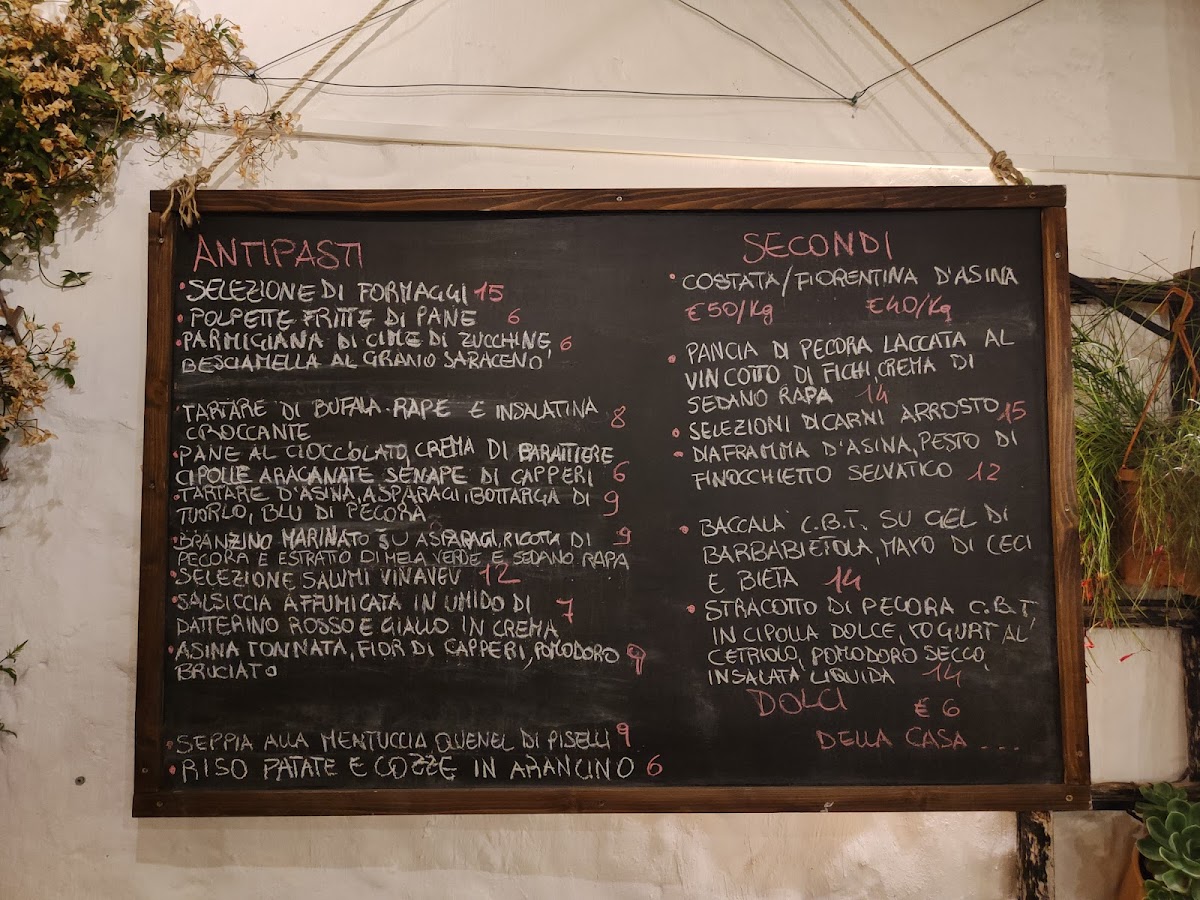 ANTIPASTI
• SELEZIONE DI FORMAGGI 15
• POLPETTE FRITTE DI PANE 6
• PARMIGIANA DI CIME DI ZUCCHINE 6
BESCIAMELLA AL GRANO SARACENO
TARTARE DI BUFALA RAPE E INSALATINA 8
CROCCANTE
• PANE AL CIOCCOLATO, CREMA DI BARATTIERE
CIPOLLE ARAGANATE SENAPE DI CAPPERI 6
• TARTARE D'ASINA, ASPARAGI, BOTTARGA DI 9
TUORLO, BLU DI PECORA
• BRANZINO MARINATO SU ASPARAGI, RICOTA DI 9
PECORA E ESTRATO DI MELA VERDE E SEDANO RAPA
• SELEZIONE SALUMI VINAVEV 12
• SALSICCIA AFFUMICATA IN UMIDO DI 7
DATTERINO ROSSO E GIALLO IN CREMA
• ASINA TONNATA, FIOR DI CAPPERI, POMODORO 9
BRUCIATO
• SEPPIA ALLA MENTUCCIA QUENEL DI PISELLI 9
• RISO PATATE E COZZE IN ARANCINO 6
SECONDI
• COSTATA/FIORENTINA D'ASINA
€50/Kg €40/Kg
• PANCIA DI PECORA LACCATA AL
VIN COTTO DI FICHI, CREMA DI
SEDANO RAPA 14
• SELEZIONI DI CARNI ARROSTO 15
• DIAFRAMMA D'ASINA, PESTO DI
FINOCCHIETTO SELVATICO 12
• BACCALA' C.B.T. SU GEL DI
BARBABIETOLA, MAYO DI CECI
E BIETA 14
• STRACOTTO DI PECORA C.B.T,
IN CIPOLLA DOLCE, YOGURT AL
CETRIOLO, POMODORO SECCO,
INSALATA LIQUIDA 14
DOLCI € 6
DELLA CASA ...